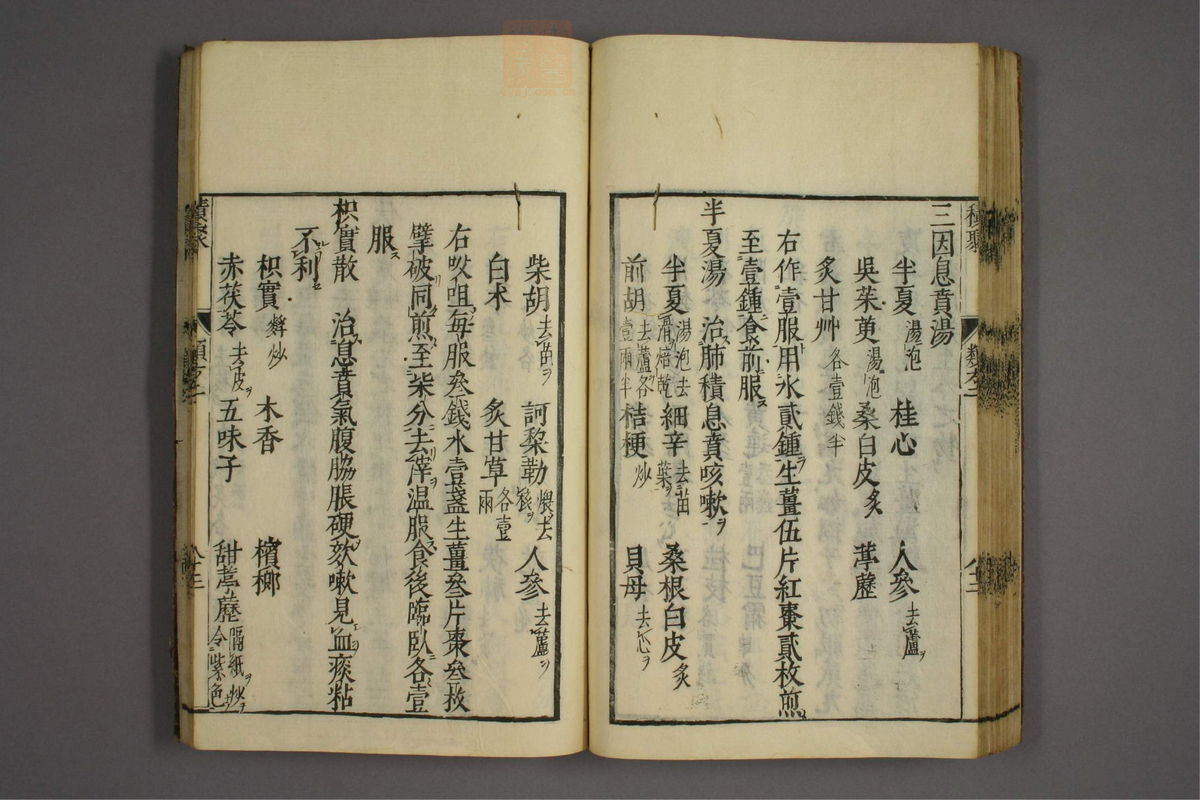 三因息賁湯
半夏湯泡 桂心 人參去蘆ヲ
吳茱萸湯泡 桑白皮炙 葶藶
炙甘艸各壹錢半
右作壹服用水貳鍾生薑伍片紅棗貳枚煎
至壹鍾食前服ス
半夏湯 治肺積息賁咳嗽
半夏湯泡去滑焙乾 細辛去苗葉 桑根白皮炙
前胡去蘆各壹兩半 桔梗炒 貝母去心ヲ
柴胡去苗ヲ 訶黎勒煨去核ヲ 人參去蘆ヲ
白朮 炙甘草各壹兩
右㕮咀每服叁錢水壹盞生薑叁片棗叁枚
擘破同煎至柒分去滓温服食後臨臥各壹
服ス
枳實散 治息賁氣腹脇脹硬欬嗽見血痰粘
不利
枳實麩炒 木香 檳榔
赤茯苓去皮ヲ 五味子 甜葶藶隔紙炒令紫色